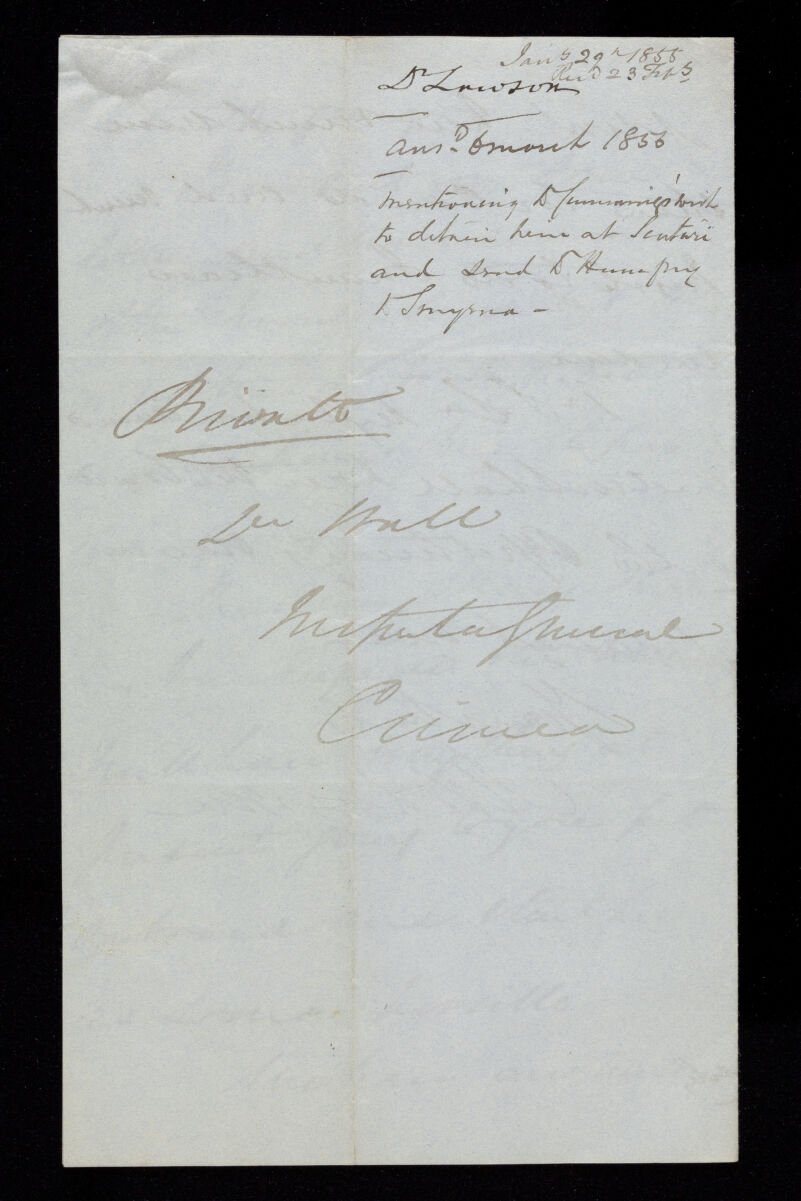 Jany 29th 1855
Recd 23 Feby
Dr Lawson
ansd. 6 March 1855
mentioning Dr Cumming's wish
to detain him at Scutari
and send Dr Humfrey
to Smyrna -
Private
Dr Hall
Inspector General
Crimea